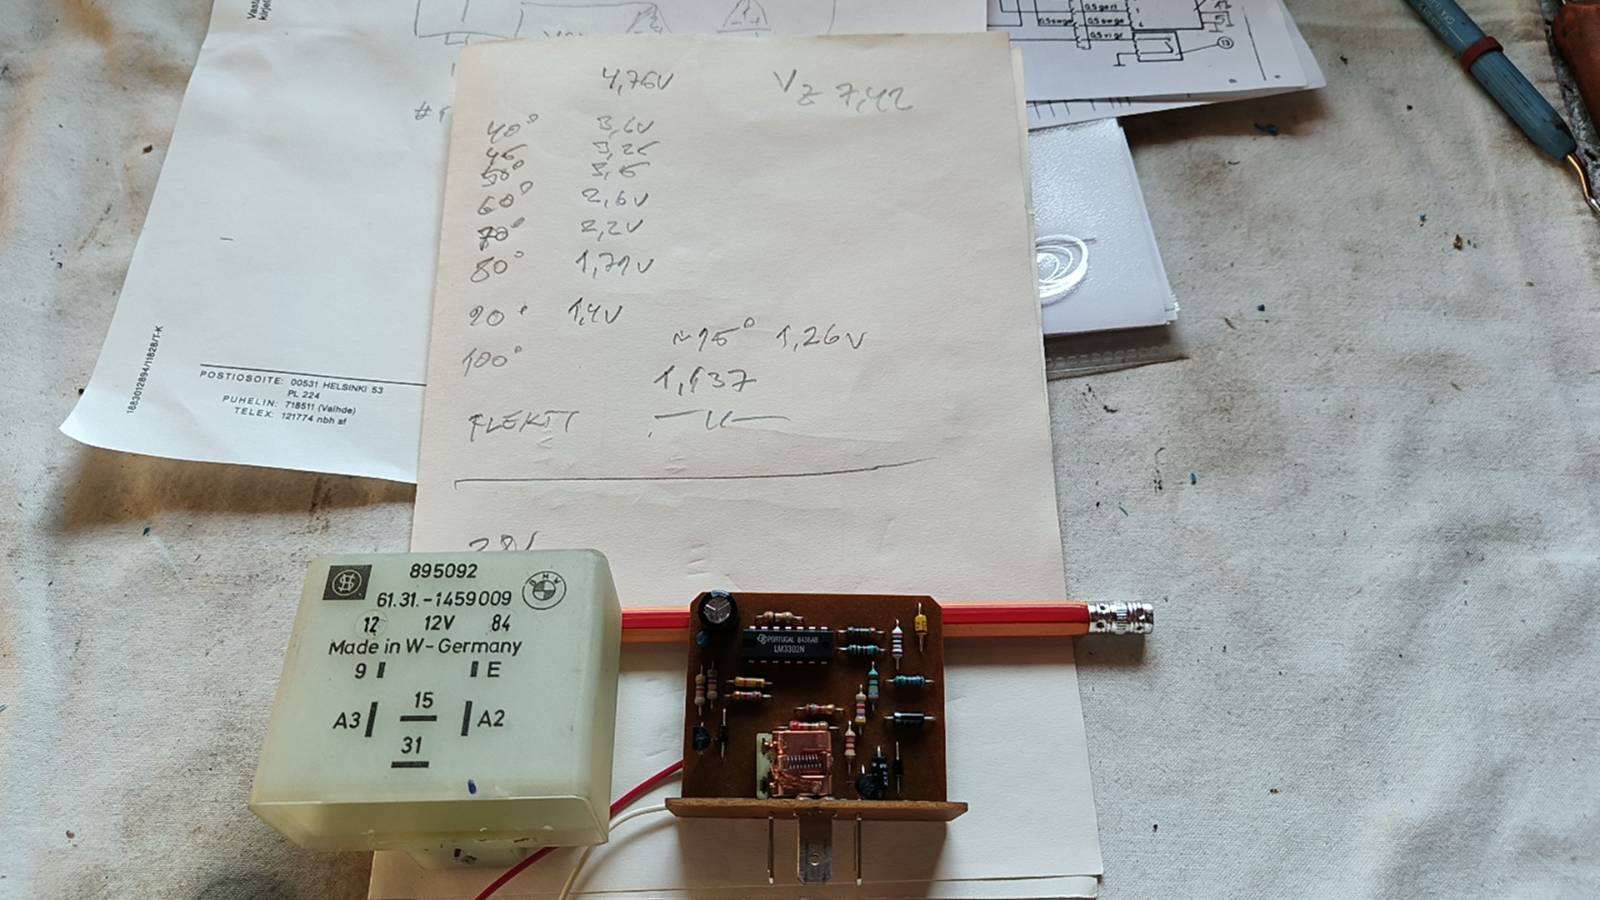 4,76V
Vz 7,42
40° 3,6V
45 3,25
50°
60° 2,6V
70° 2,2V
80° 1,79V
90° 1,4V
~95° 1,26V
100°
1,137
POSTIOSOITE: 00531 HELSINKI 53
PL 224
PUHELIN: 718511 (Vaihde)
TELEX: 121774 nbh sf
1883012894/11828/T-K
895092
BMW
61.31.-1459009
12 12V 84
Made in W-Germany
9 E
15
A3 A2
31
PORTUGAL 8436AB
LM3302N